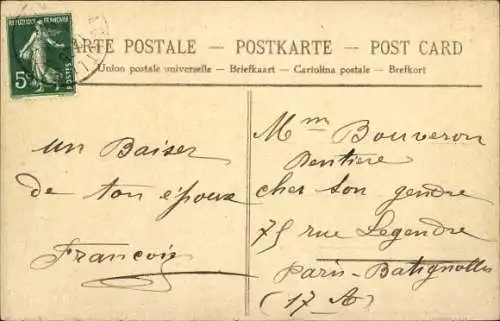 REPUBLIQUE FRANÇAISE
5c
POSTES
CARTE POSTALE — POSTKARTE — POST CARD
Union postale universelle — Briefkaart — Cartolina postale — Brefkort
un Baiser
de ton époux
François
Mm Bouveron
Rentiere
cher son gendre
75 rue Legendre
Paris-Batignolles
(17 A)